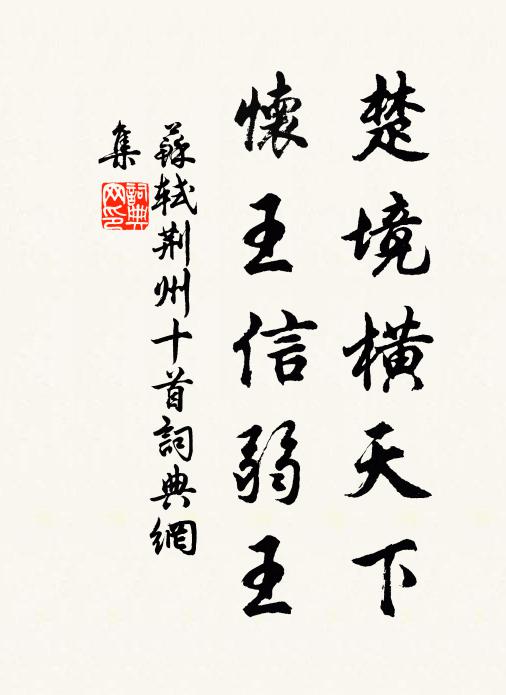 楚境橫天下
懷王信弱王
蘇軾荆州十首詞典網
集
詞典
网印